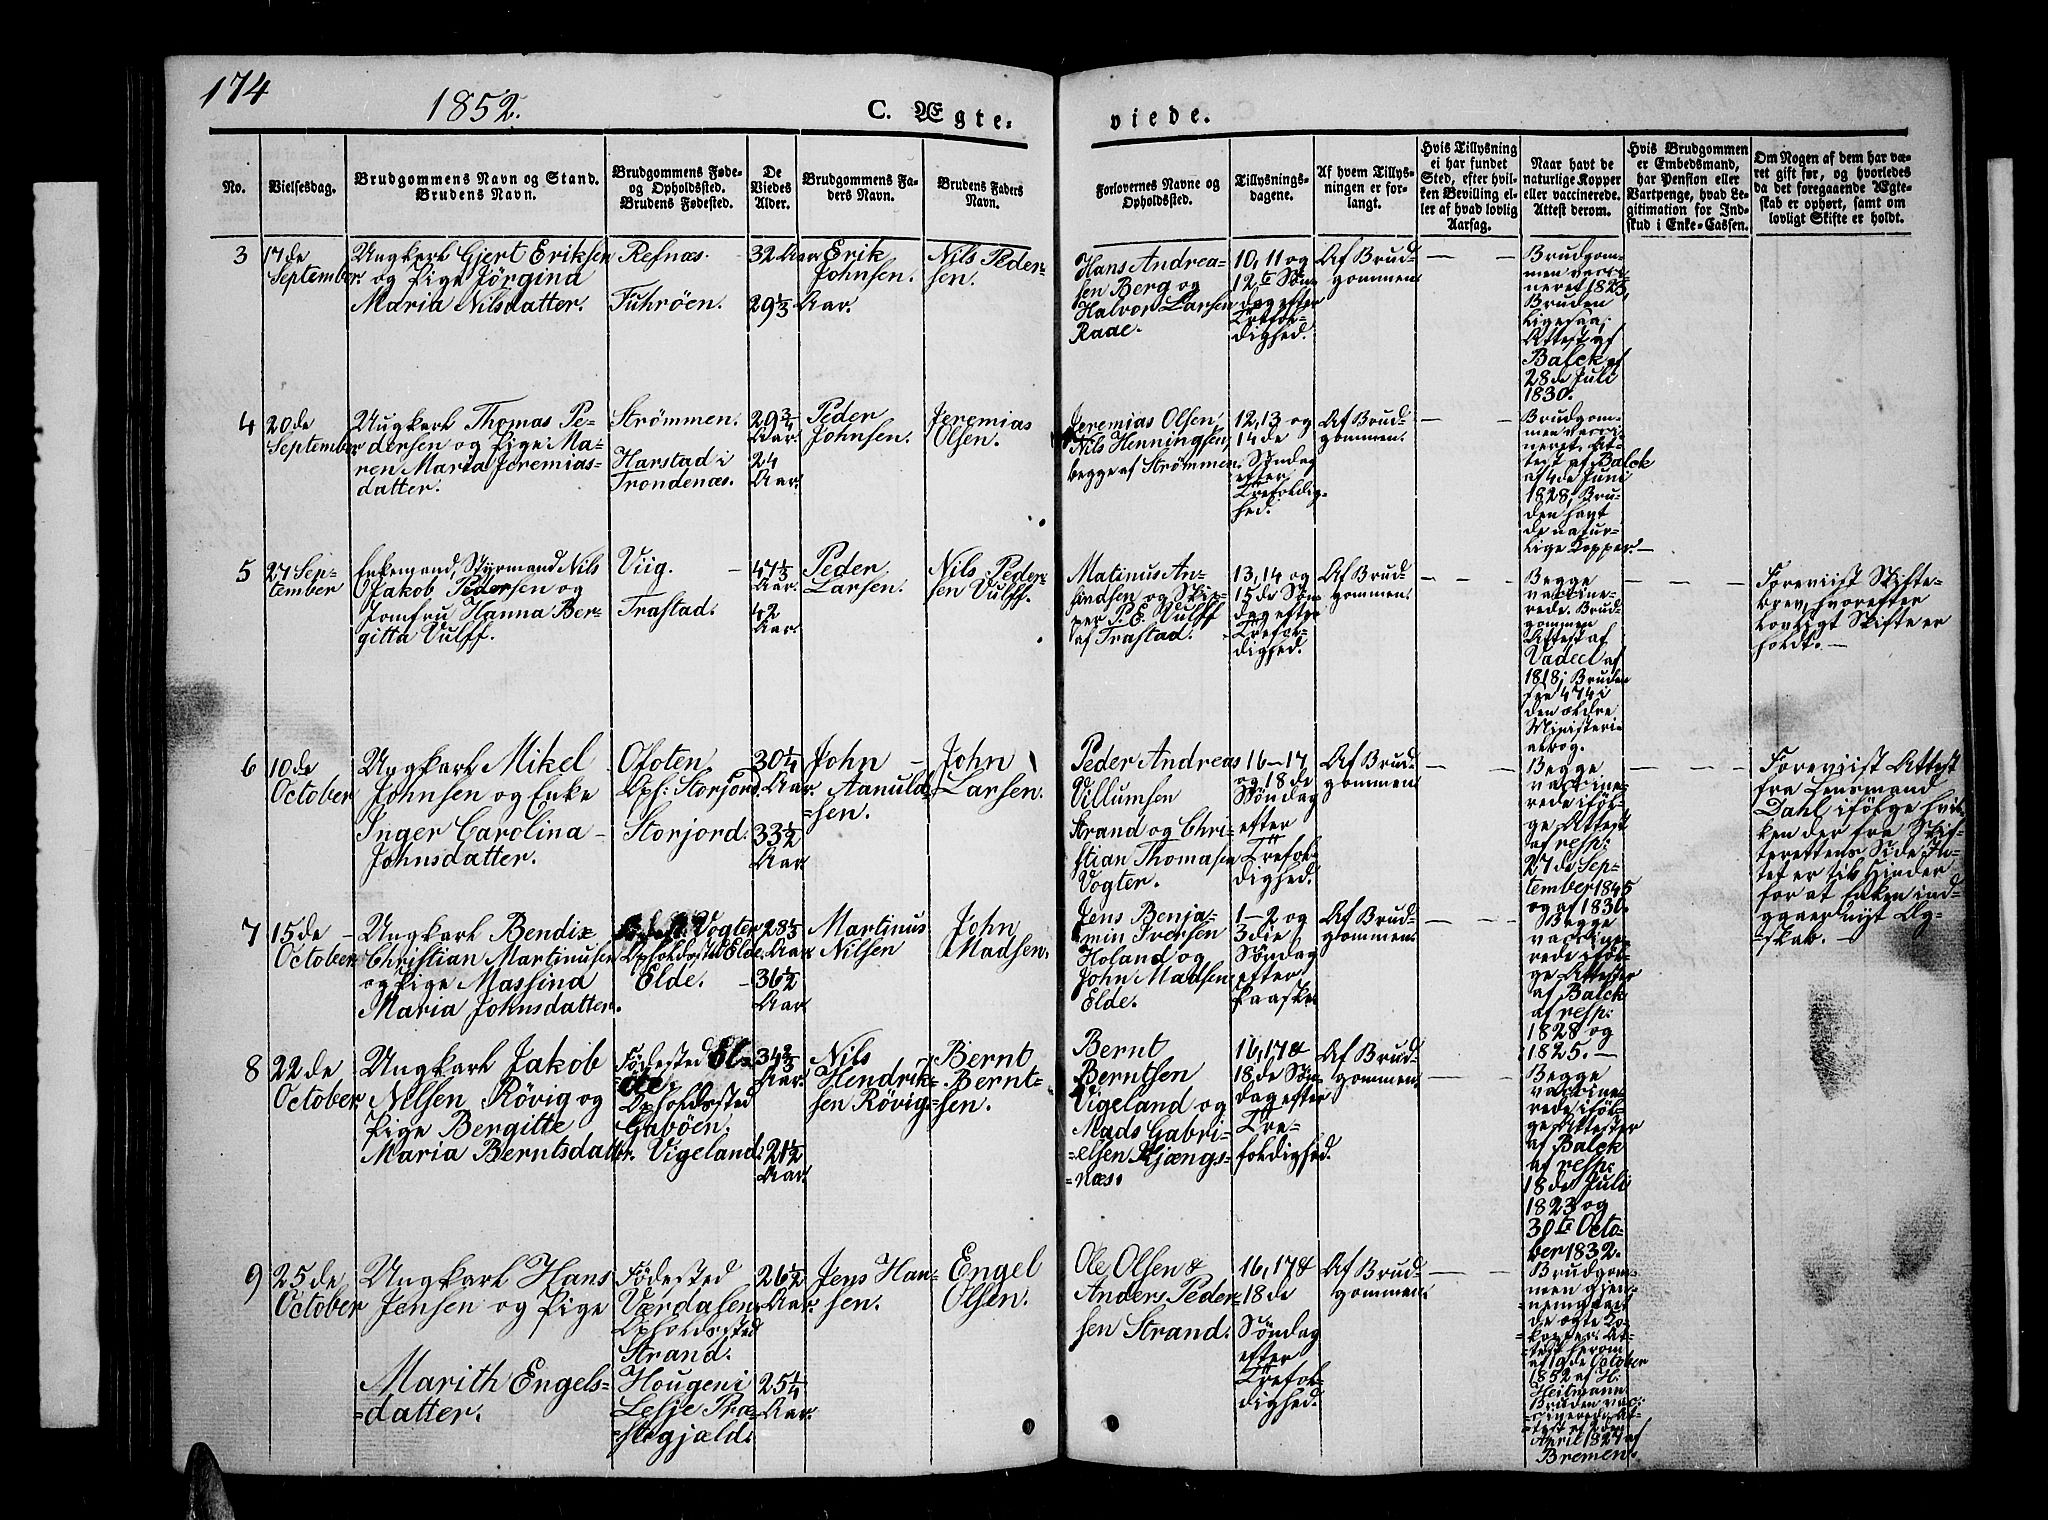 174
1852.
C. Ægte=
viede.
No.
Vielsesdag.
Brudgommens Navn og Stand.
Brudens Navn.
Brudgommens Føde=
og Opholdsted.
Brudens Fødested.
De
Viedes
Alder.
Brudgommens Fa=
ders Navn.
Brudens Faders
Navn.
Forlovernes Navne og
Opholdsted.
Tillysnings=
dagene.
Af hvem Tillys=
ningen er for=
langt.
Hvis Tillysning
ei har fundet
Sted, efter hvil=
ken Bevilling el=
ler af hvad lovlig
Aarsag.
Naar havt de
naturlige Kopper
eller vaccinerede.
Attest derom.
Hvis Brudgommen
er Embedsmand,
har Pension eller
Vartpenge, hvad Le=
gitimation for Ind=
skud i Enke-Cassen.
Om Nogen af dem har væ=
ret gift før, og hvorledes
da det foregaaende Ægte=
skab er ophørt, samt om
lovligt Skifte er holdt.
3
17de
September
Ungkarl Gjert Eriksen
og Pige Jörgina
Maria Nilsdatter.
Refsnæs.
Fuhröen.
32 Aar
29 1/3 Aar.
Erik
Johnsen.
Nils Peder=
sen.
Hans Andrea=
sen Berg og
Halvor Larsen
Raae.
10, 11 og
12te Søn=
dag efter
Trefol=
dighed.
Af Brud=
gommen
Brudgom=
men vacci=
neret 1823,
Bruden
ligesaa,
Attest af
Balck af
28de Juli
1830.
4
20de
September
Ungkarl Thomas Pe=
dersen og Pige Ma=
ren Maria Jeremias=
datter.
Strömmen.
Harstad i
Trondenæs.
29 3/4
Aar.
24
Aar.
Peder
Johnsen.
Jeremias
Olsen.
Jeremias Olsen,
Nils Henningsen,
begge af Strömmen.
12, 13 og
14de
Søndag
efter
Trefoldig=
hed.
Af Brud=
gommen.
Brudgom=
men vacci=
neret, At=
test af Balck
af 4de Juni
1828, Bru=
den havt
de natur=
lige Kopper.
5
27 Sep=
tember
Enkemand, Styrmand Nils
Jakob Pedersen og
Jomfru Hanna Ber=
gitta Vulff.
Viig.
Trastad.
47 1/3
Aar.
42
Aar.
Peder
Larsen.
Nils Peder=
sen Vulff.
Matinus An=
findsen og Skip=
per P. E. Vulff
af Trastad.
13, 14 og
15de Søn=
dag efter
Trefol=
dighed.
Af Brud=
gommen.
Begge
vaccine=
rede. Brud=
gommen
Attest af
Vadeel af
1818; Bruden
474 i
den ældre
Ministeri=
albog.
Foreviist Skifte=
brev, hvorefter
lovligt Skifte er
holdt.
6
10de
October
Ungkarl Mikel
Johnsen og Enke
Inger Carolina
Johnsdatter.
Ofoten
Oph: Storjord.
Storjord.
30 1/4
Aar.
33 1/2
Aar.
John
Aanuld=
sen.
John
Larsen.
Peder Andreas
Villumsen
Strand og Chri=
stian Thomasen
Vogter.
16-17
og 18de
Søndag
efter
Trefol=
dighed.
Af Brud=
gommen
Begge
vaccine=
rede ifølge
Attest
af resp:
27de Sep=
tember 1845
og af 1830.
Foreviist Attest
fra Lensmand
Dahl, ifølge hvil=
ken der fra Skif=
terettens Side In=
tet er til Hinder
for at Enken ind=
gaaer nyt Æg=
=skab.
7
15de
October
Ungkarl Bendix
Christian Martinusen
og Pige Massina
Maria Johnsdatter.
Vogter
Opholdssted Elde.
Elde.
28 1/3
Aar.
36 1/2
Aar.
Martinus
Nilsen
John
Madsen.
Jens Benja=
min Iversen
Holand og
John Madsen
Elde.
1-2 og
3die
Søndag
efter
Paaske.
Af Brud=
gommen.
Begge
vaccine=
rede iføl=
ge Attester
af Balck
af resp:
1828 og
1825.
8
22de
October
Ungkarl Jakob
Nilsen Rövig og
Pige Bergitte
Maria Berntsdatter.
Födested El=
de
Opholdssted
Gaböen.
Vigeland.
34 2/3
Aar.
21 1/2
Aar.
Nils
Hendrik=
sen Rövig.
Bernt
Bernt=
sen.
Bernt
Berntsen
Vigeland og
Mads Gabri=
=elsen Kjængs=
=næs.
16, 17 &
18de Søn=
dag efter
Tre=
foldighed.
Af Brud=
gommen
Begge
vaccine=
rede iføl=
ge Attester
af Balck
af resp:
18de Juli
1823 og
30te Octo=
ber 1832.
9
25de
October
Ungkarl Hans
Jensen og Pige
Marith Engels=
=datter.
Födested
Værdalsen
Opholdssted
Strand.
Hougen i
Lesje Præ=
=stegjæld.
26 1/2
Aar.
25 1/4
Aar.
Jens Han=
sen.
Engel
Olsen.
Ole Olsen &
Anders Peder=
sen Strand.
16, 17 &
18de
Søndag
efter
Trefol=
dighed.
Af Brud=
gommen.
Brudgom=
men gjen=
nemgaaet
de ægte Ko=
kopper. At=
=test herom
af 19de October
1852 af H.
Heitmann.
Bruden vac=
cinered, At=
=test af 2den
April 1827 af
Bremen.